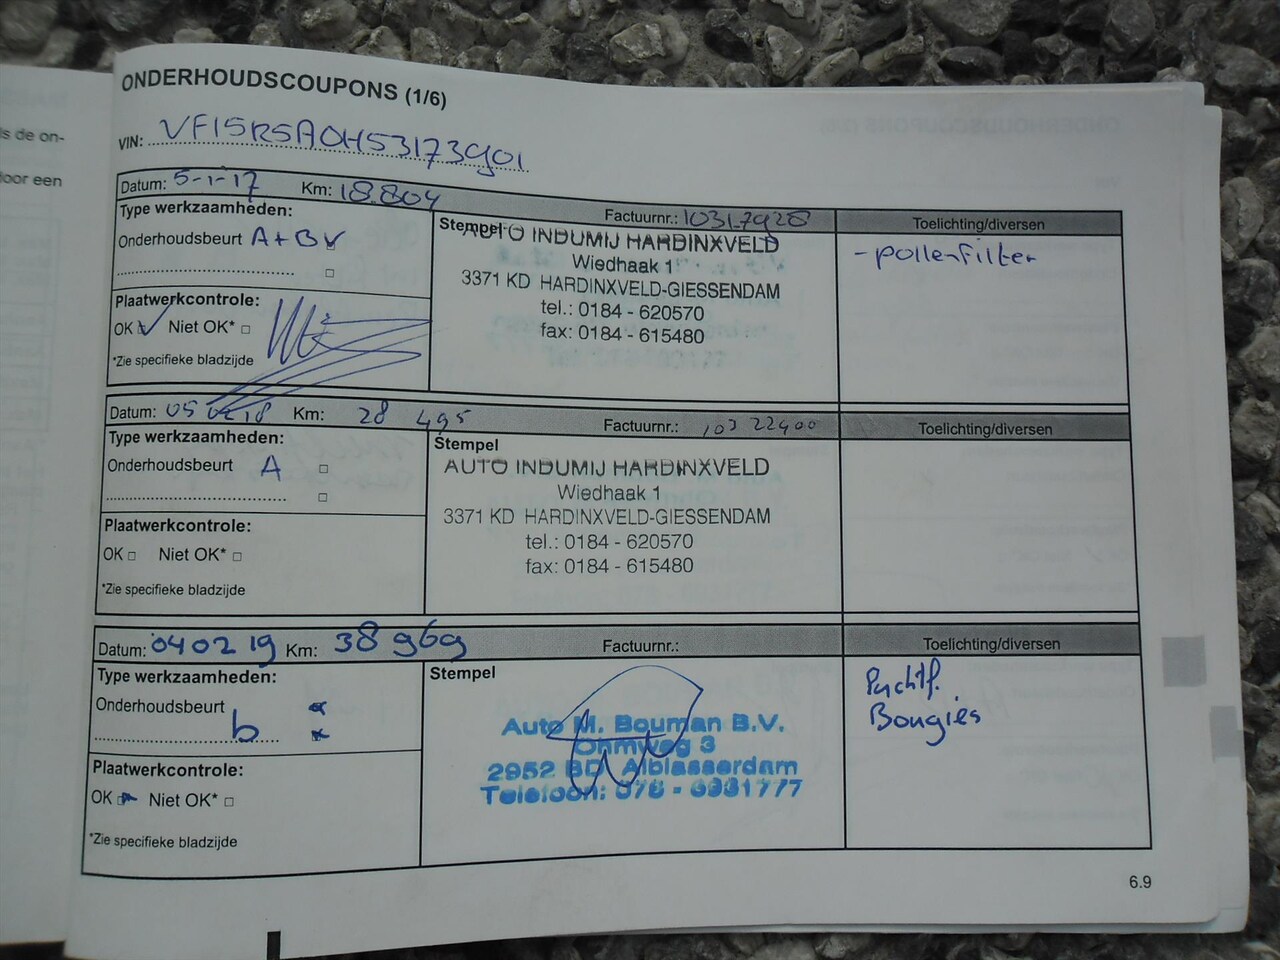 ls de on-
door een
ONDERHOUDSCOUPONS (1/6)
VIN: VF15R5A0H53173901
Datum: 5-1-17 Km: 18.804 Factuurnr.: 10317928 Toelichting/diversen
Type werkzaamheden:
Onderhoudsbeurt A+B
Stempel
AUTO INDUMIJ HARDINXVELD
Wiedhaak 1
3371 KD HARDINXVELD-GIESSENDAM
tel.: 0184 - 620570
fax: 0184 - 615480
- pollenfilter
Plaatwerkcontrole:
OK Niet OK*
*Zie specifieke bladzijde
Datum: 05 02 18 Km: 28 495 Factuurnr.: 10322400 Toelichting/diversen
Type werkzaamheden:
Onderhoudsbeurt A
Stempel
AUTO INDUMIJ HARDINXVELD
Wiedhaak 1
3371 KD HARDINXVELD-GIESSENDAM
tel.: 0184 - 620570
fax: 0184 - 615480
Plaatwerkcontrole:
OK Niet OK*
*Zie specifieke bladzijde
Datum: 04 02 19 Km: 38 969 Factuurnr.: Toelichting/diversen
Type werkzaamheden:
Onderhoudsbeurt
b
Stempel
Auto M. Bouman B.V.
Ohmweg 3
2952 BD Alblasserdam
Telefoon: 078 - 6931777
Bougies
Plaatwerkcontrole:
OK Niet OK*
*Zie specifieke bladzijde
6.9